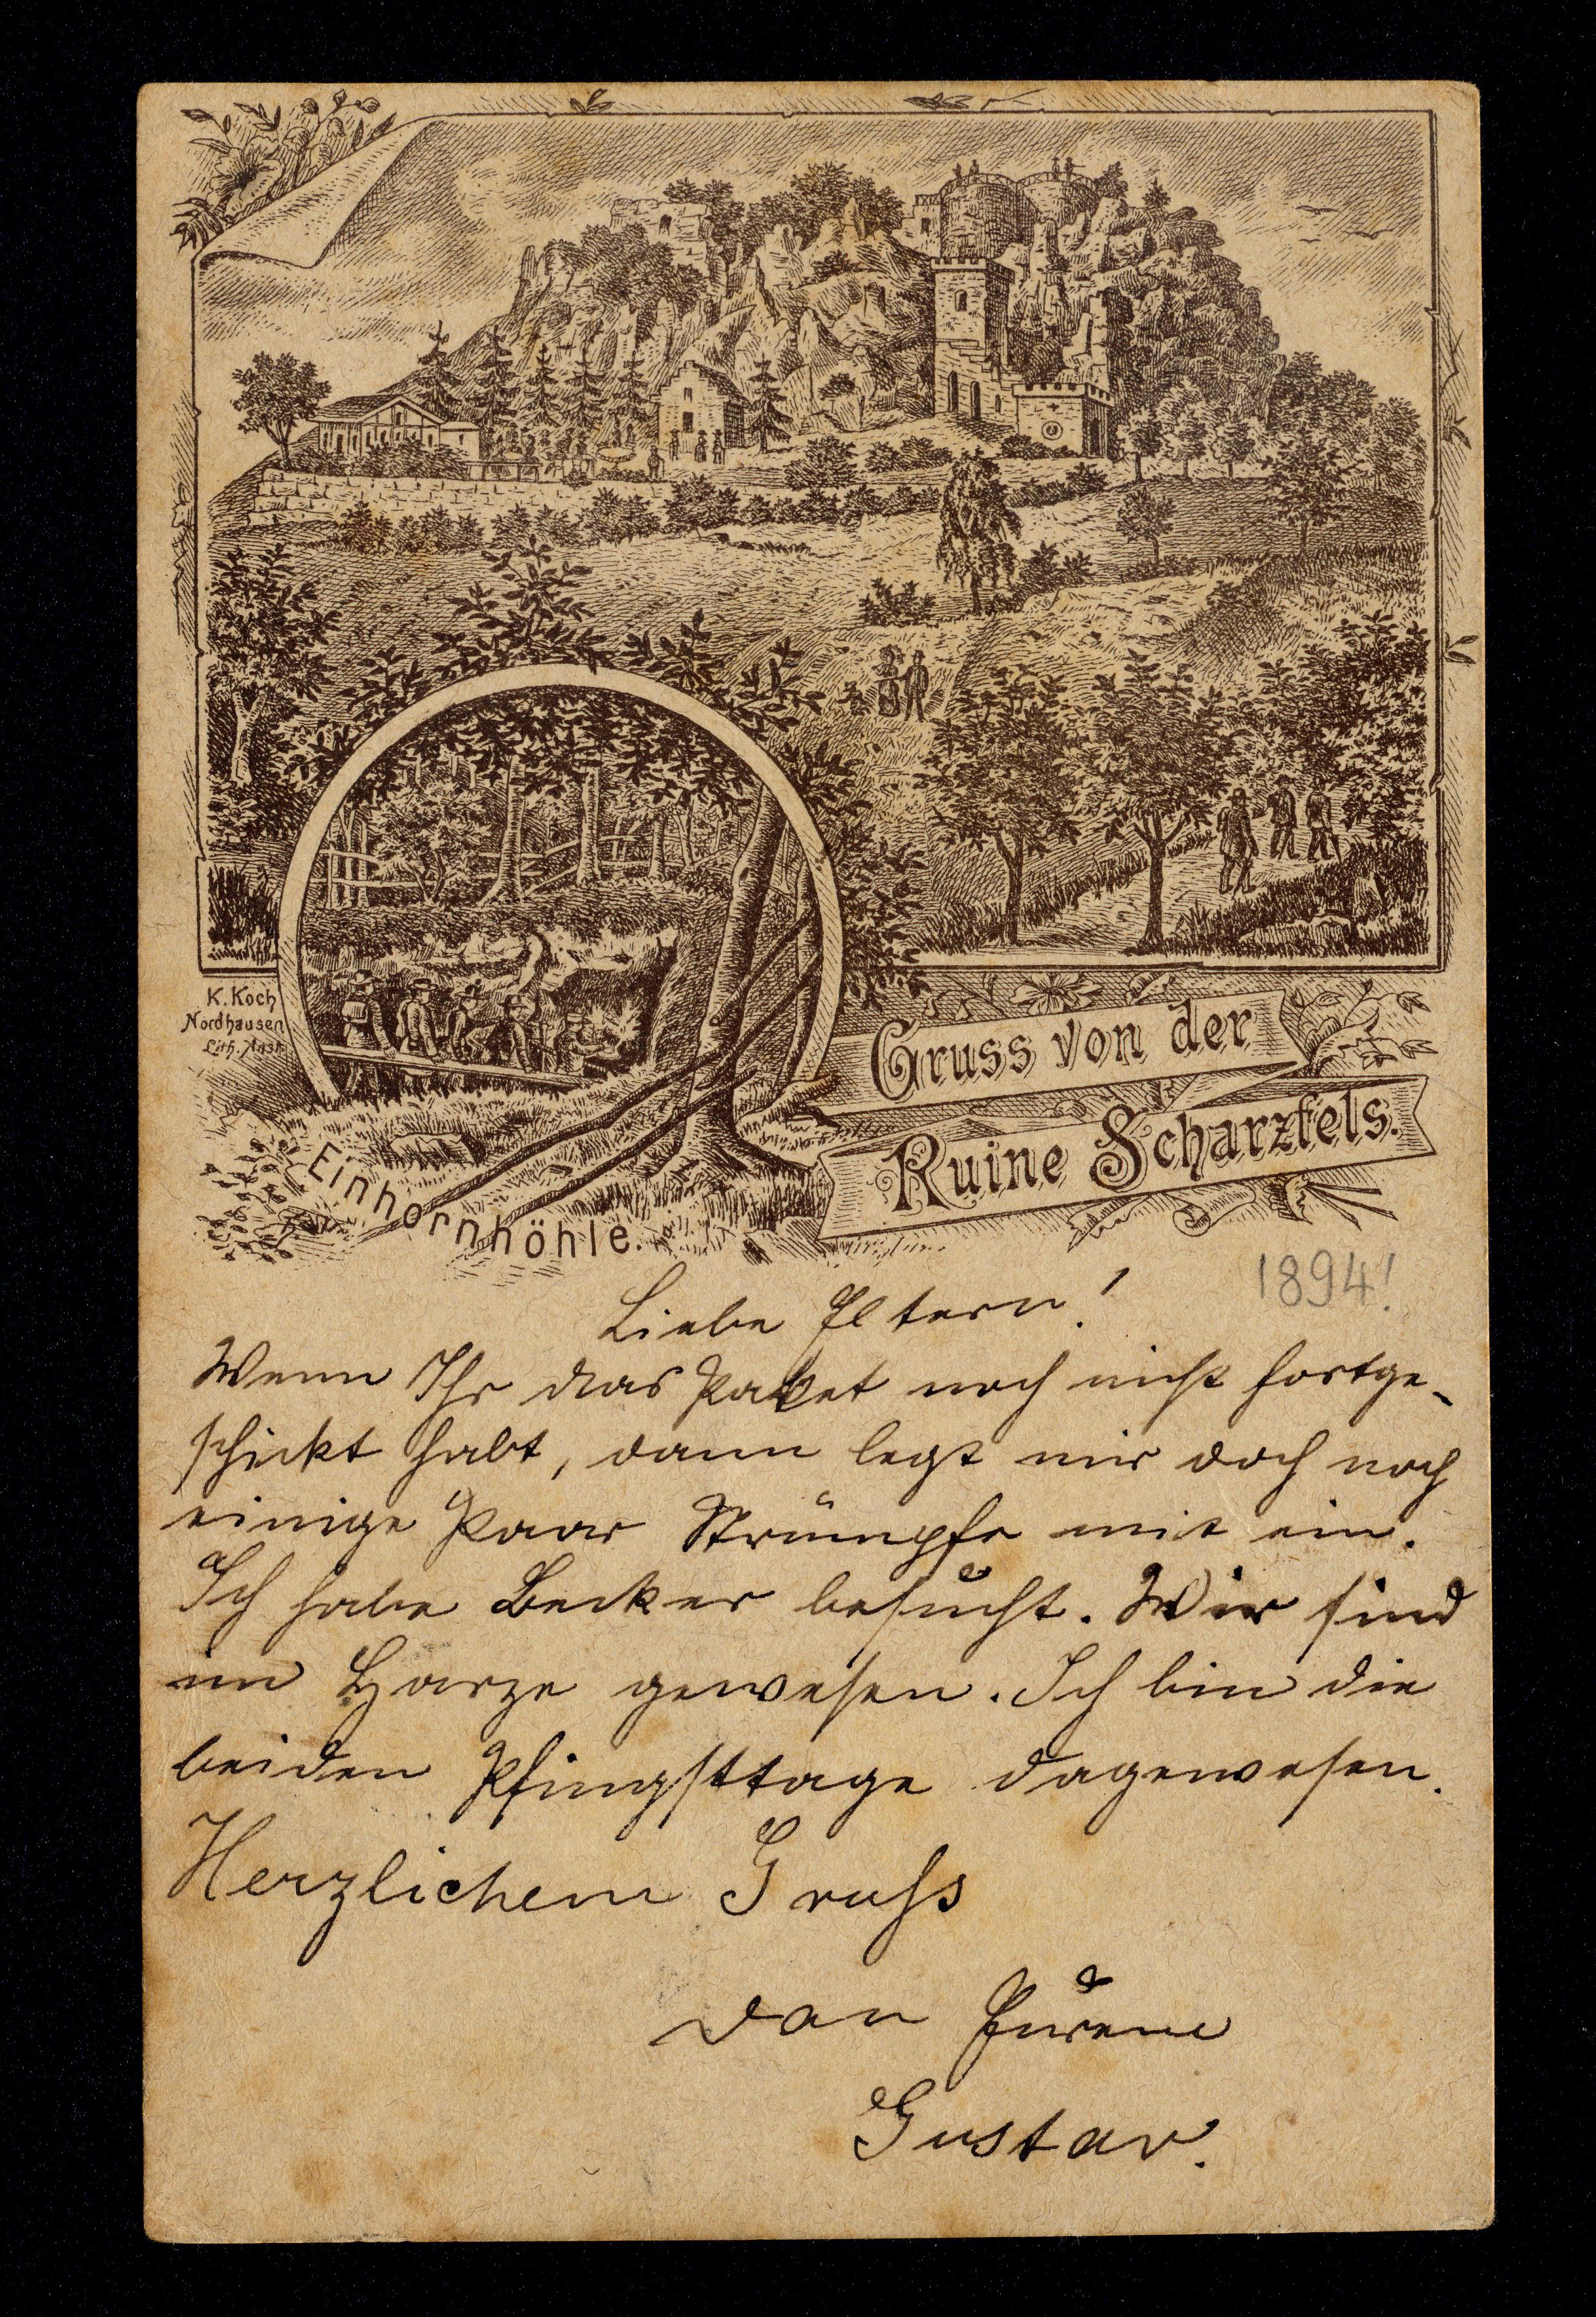 K. Koch
Nordhausen
Lith. Anst.
Einhornhöhle.
Gruss von der
Ruine Scharzfels.
1894!
Liebe Eltern!
Wenn Ihr das Paket noch nicht fortge-
schickt habt, dann legt mir doch noch
einige Paar Strümpfe mit ein.
Ich habe Becker besucht. Wir sind
im Harze gewesen. Ich bin die
beiden Pfingsttage dagewesen.
Herzlichem Gruss
von Eurem
Gustav.